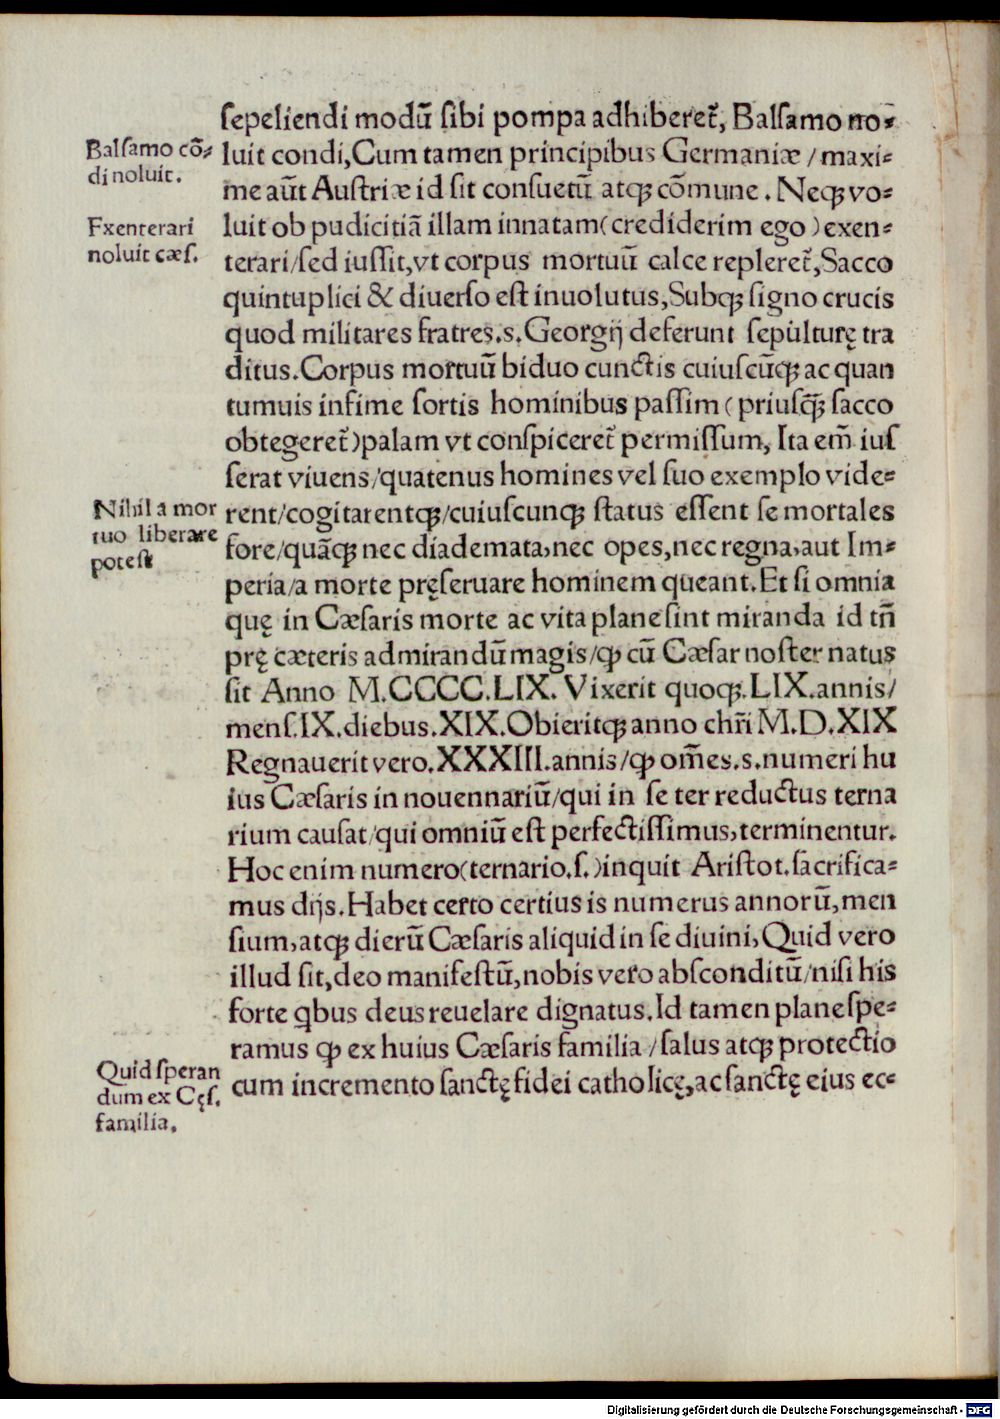 sepeliendi modū sibi pompa adhiberet̄, Balsamo no⸗
Balsamo cō⸗
di noluit.
luit condi, Cum tamen principibus Germaniæ / maxi⸗
me aūt Austriæ id sit consuetū atqꝫ cōmune. Neqꝫ vo⸗
Exenterari
noluit cæs.
luit ob pudicitiā illam innatam (crediderim ego) exen⸗
terari / sed iussit, vt corpus mortuū calce repleret̄, Sacco
quintuplici & diuerso est inuolutus, Subqꝫ signo crucis
quod militares fratres .s. Georgij deferunt sepulturę tra
ditus. Corpus mortuū biduo cunctis cuiuscūqꝫ ac quan
tumuis infime sortis hominibus passim (priusq̄ꝫ sacco
obtegeret̄) palam vt conspiceret̄ permissum, Ita em̄ ius
serat viuens / quatenus homines vel suo exemplo vide⸗
Nihil a mor
tuo liberare
potest
rent / cogitarentqꝫ / cuiuscunqꝫ status essent se mortales
fore / quāqꝫ nec diademata, nec opes, nec regna, aut Im⸗
peria / a morte pręseruare hominem queant. Et si omnia
quę in Cæsaris morte ac vita plane sint miranda id tn̄
prę cæteris admirandū magis / ꝙ cū Cæsar noster natus
sit Anno M.CCCC.LIX. Vixerit quoqꝫ. LIX. annis /
mens. IX. diebus. XIX. Obieritqꝫ anno chr̄i M.D.XIX
Regnauerit vero. XXXIII. annis / ꝙ om̄es .s. numeri hu
ius Cæsaris in nouennariū / qui in se ter reductus terna
rium causat / qui omniū est perfectissimus, terminentur.
Hoc enim numero (ternario .s.) inquit Aristot. sacrifica⸗
mus dijs. Habet certo certius is numerus annorū, men
sium, atqꝫ dierū Cæsaris aliquid in se diuini, Quid vero
illud sit, deo manifestū, nobis vero absconditū / nisi his
forte qbus deus reuelare dignatus. Id tamen plane spe⸗
ramus ꝙ ex huius Cæsaris familia / salus atqꝫ protectio
Quid speran
dum ex Cęs.
familia.
cum incremento sanctę fidei catholicę, ac sanctę eius ec⸗
Digitalisierung gefördert durch die Deutsche Forschungsgemeinschaft - DFG